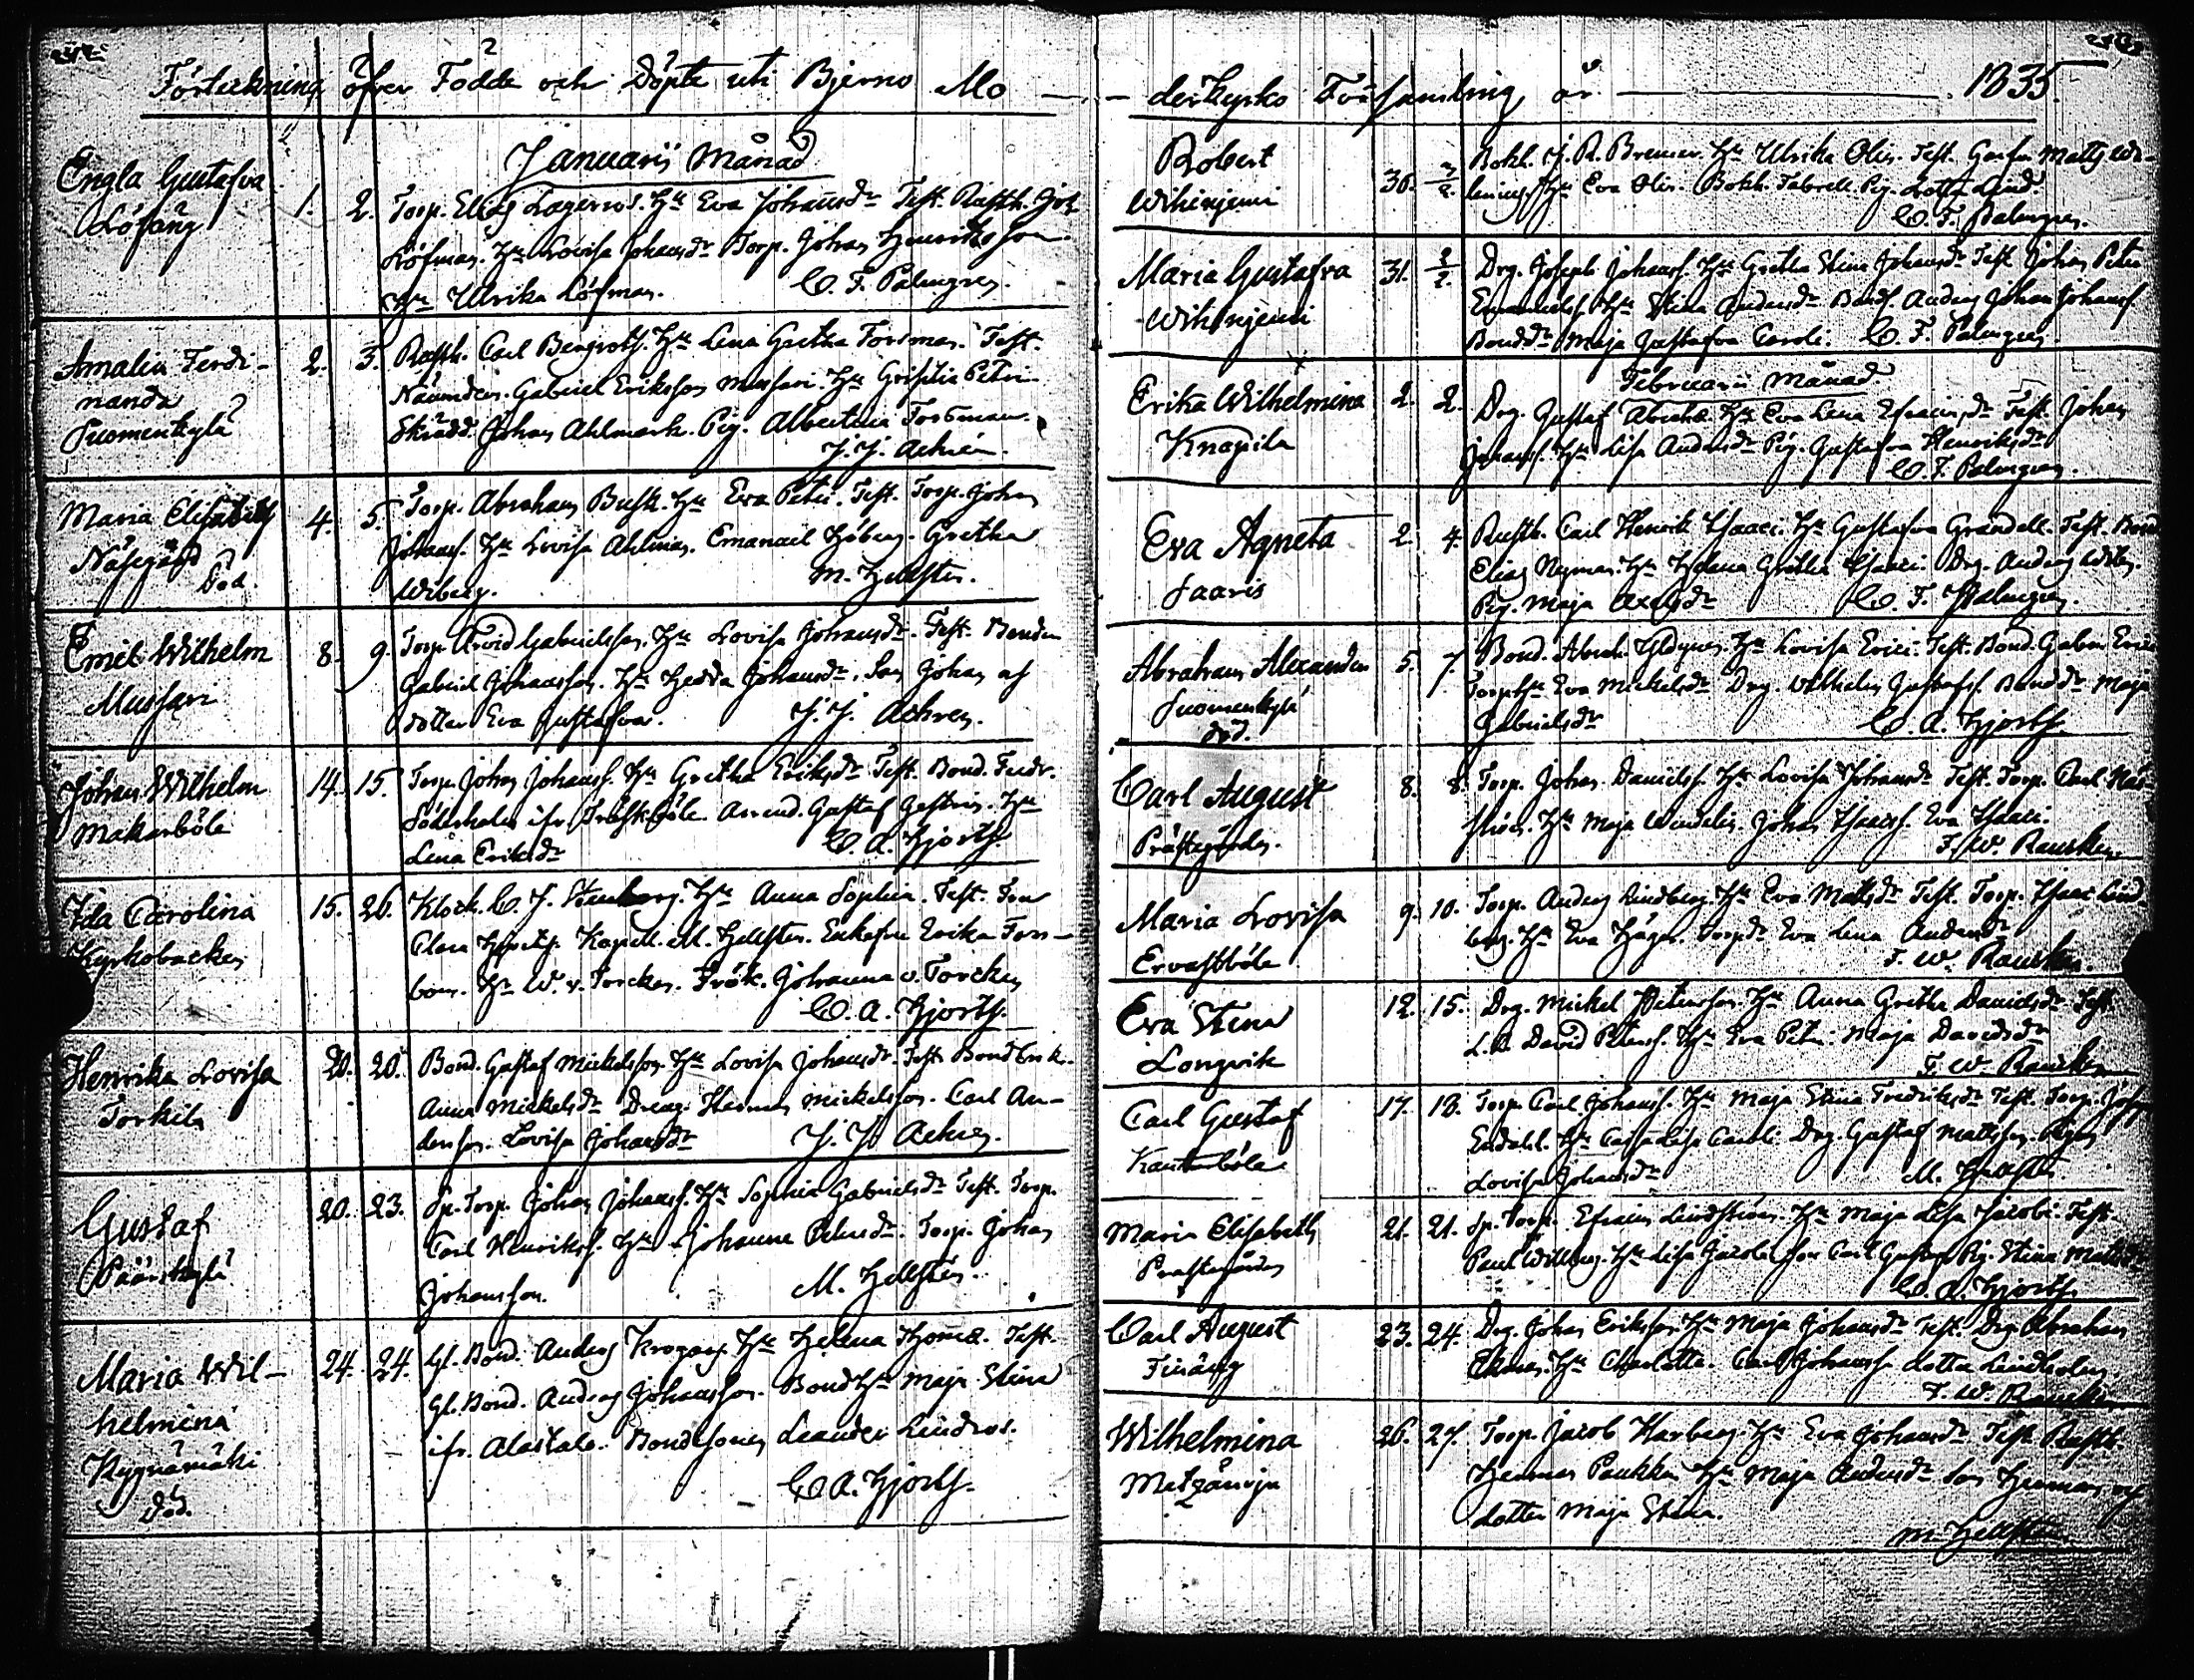 Förteckning öfver Födde och Döpte uti Bjerno Mo
Januarii Månad
Engla Gustafva
Löfäng
1. 2. Torp. Elias Lagerros. Hu Eva Johansdr Test. Rusth. Joh
Löfman. Hu Lovisa Johansdr Torp. Johan Henriksson
Hu Ulrika Löfman. C. F. Palmgren.
Amalia Ferdi-
nanda
Suomenkylä
2. 3. Rusth. Carl Bergroth. Hu Lena Gretha Forsman. Test.
Nämndem. Gabriel Eriksson Mussari. Hu Grisilia Petri
Skrädd. Johan Ahlmark. Pig. Albertina Forsman.
J. J. Achrén.
Maria Elisabeth
Näsegård
Död.
4. 5. Torp. Abraham Busk. Hu Eva Petri. Test. Torp. Johan
Johanss. Hu Lovisa Ahlman. Emanuel Höberg. Gretha
Wiberg. M. Hellsten.
Emil Wilhelm
Mussari
8. 9. Torp. Arvid Gabrielsson. Hu Lovisa Johansdr. Test. Bonden
Gabriel Johansson. Hu Hedda Johansdr. Son Johan af
dotter Eva Gustafva. J. J. Achren.
Johan Wilhelm
Makarböle
14. 15. Torp. Johan Johanss. Hu Gretha Eriksdr Test. Bond. Fredr.
Söderholm ifr. Träskböle. Arrend. Gustaf Hu
Lena Eriksdr C. A. Hjorth.
Ida Carolina
Kyrkobacken
15. 26. Klock. C. J. Stenberg. Hu Anna Sophia. Test. Fru
Clara Hjorth. Kapell. M. Hellsten. Enkefru Erika Fors-
bom. Hr W. v. Torcken. Frök. Johanna v. Torcken
C. A. Hjorth.
Henrika Lovisa
Torkila
20. 20. Bond. Gustaf Mickelsson. Hu Lovisa Johansdr. Test. Bond Enk.
Anna Mickelsdr Dreng. Herman Mickelsson. Carl An-
dersson. Lovisa Johansdr J. J. Achren.
Gustaf
Päärskylä
20. 23. Sp. Torp. Johan Johanss. Hu Sophia Gabrielsdr Test. Torp.
Carl Henrikss. Hu Johanna Petersdr. Torp. Johan
Johansson. M. Hellstén.
Maria Wil-
helmina
Kygnämäki
död.
24. 24. Gl. Bond. Anders Krogars. Hu Helena Thoma. Test.
Gl. Bond. Anders Johansson. Bond Hu Maja Stina
ifr. Alastalo. Bondesonen Leander Lindros.
C. A. Hjorth.
derkyrko Församling år 1835.
Robert
Wihinjemi
30. 7/2. Bokh. J. R. Bremer. Hu Ulrika Olin. Test.
Hu Eva Olin. Bokh. Fabrell. Pig. Lotta Lind.
C. F. Palmgren.
Maria Gustafva
Wihinjemi
31. 2. Drg. Joseph Johanss. Hu Gretha Stina Johansdr Test. Johan Peter
Emanuelss. Hu Stina Andersdr. Bonds. Anders Johan Johanss.
Bonddr Maja Gustafva Caroli. C. F. Palmgren.
Februarii Månad.
Erika Wilhelmina
Knapila
2. 2. Drg. Gustaf Hu Eva Lena Efraimsdr Test. Johan
Johanss. Hu Lisa Andersdr Pig. Gustafva Henriksdr
C. F. Palmgren.
Eva Agneta
Saaris
2. 4. Rusth. Carl Henrik Isaaci. Hu Gustafva Grandell. Test. Bond
Elias Nyman. Hu Helena Gretha Isaaci. Drg. Anders
Pig. Maja Axelsdr C. F. Palmgren.
Abraham Alexander
Suomenkylä
död.
5. 7. Bond. Abrah. Hu Lovisa Erici. Test. Bond. Gabriel Erici
Torp Hu Eva Mickelsdr Drg. Wilhelm Gustafss. Bonddr Maja
Gabrielsdr C. A. Hjorth.
Carl August
Prästegården.
8. 8. Torp. Johan Danielss. Hu Lovisa Johansdr Test. Torp. Carl
Hu Maja Johan Isaacss. Eva Isaaci.
F. W. Rancken.
Maria Lovisa
Ervastböle
9. 10. Torp. Anders Lindberg. Hu Eva Mattsdr Test. Torp. Isaac Lind-
berg. Hu Eva Häger. Torpdr Eva Lena Andersdr
F. W. Rancken.
Eva Stina
Longvik
12. 15. Drg. Mickel Petersson. Hu Anna Gretha Davidsdr Test.
David Peterss. Hu Eva Petri. Maja Davidsdr
F. W. Rancken
Carl Gustaf
17. 18. Torp. Carl Johanss. Hu Maja Stina Fredriksdr Test. Torp.
Endahl. Hu Caisa Lisa Caroli. Drg. Gustaf Mattsson. Pigan
Lovisa Johansdr M. Hellstén.
Maria Elisabeth
Prästegården
21. 21. Sp. Torp. Efraim Lindström. Hu Maja Lisa Jacobi. Test.
Paul Willberg. Hu Lisa Jacobi son Carl Gustaf Pig. Stina Mattsdr
C. A. Hjorth.
Carl August
Finäng
23. 24. Drg. Johan Eriksson. Hu Maja Johansdr Test. Drg. Abraham
Ekman. Hu Charlotta. Carl Johanss. Lotta Lindholm.
F. W. Rancken
Wilhelmina
Metzänoja
26. 27. Torp. Jacob Harberg. Hu Eva Johansdr Test. Rusth.
Herman Paukku Hu Maja Andersdr Son Herman och
dotter Maja Stina.
M. Hellstén.